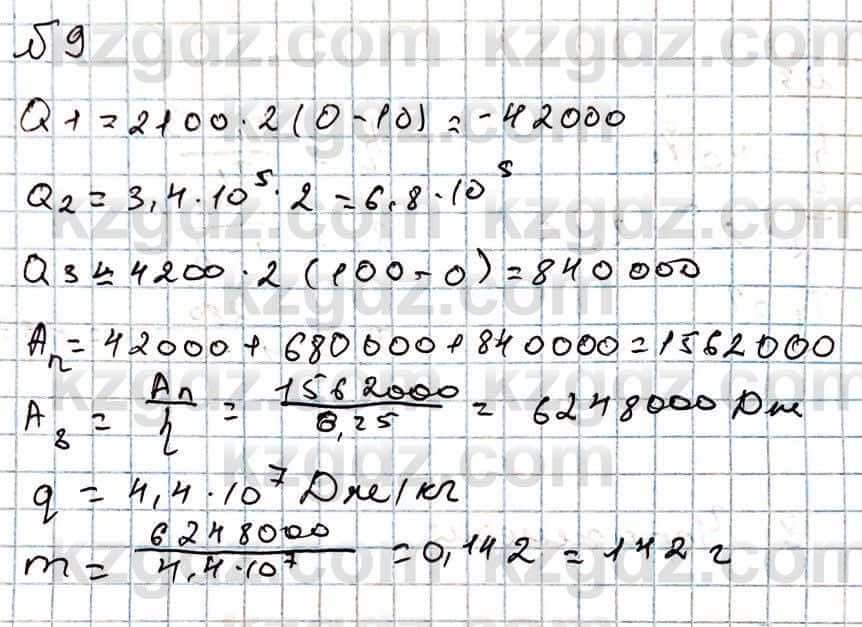 №9
Q1 = 2100 · 2 (0 - 10) = -42000
Q2 = 3,4 · 10⁵ · 2 = 6,8 · 10⁵
Q3 = 4200 · 2 (100 - 0) = 840000
Aп = 42000 + 680000 + 840000 = 1562000
Aз = Aп / η = 1562000 / 0,25 = 6248000 Дж
q = 4,4 · 10⁷ Дж/кг
m = 6248000 / 4,4·10⁷ = 0,142 = 142 г
kzgdz.com